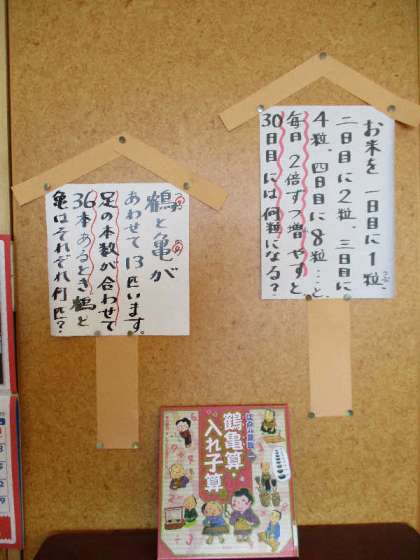 お米を一日目に1粒、
二日目に2粒、三日目に
4粒、四日目に8粒…と、
毎日2倍ずつ増やすと
30日目には何粒になる？
鶴と亀が
あわせて13匹います。
足の本数が合わせて
36本あるとき鶴と
亀はそれぞれ何匹？
鶴亀算・
入れ子算